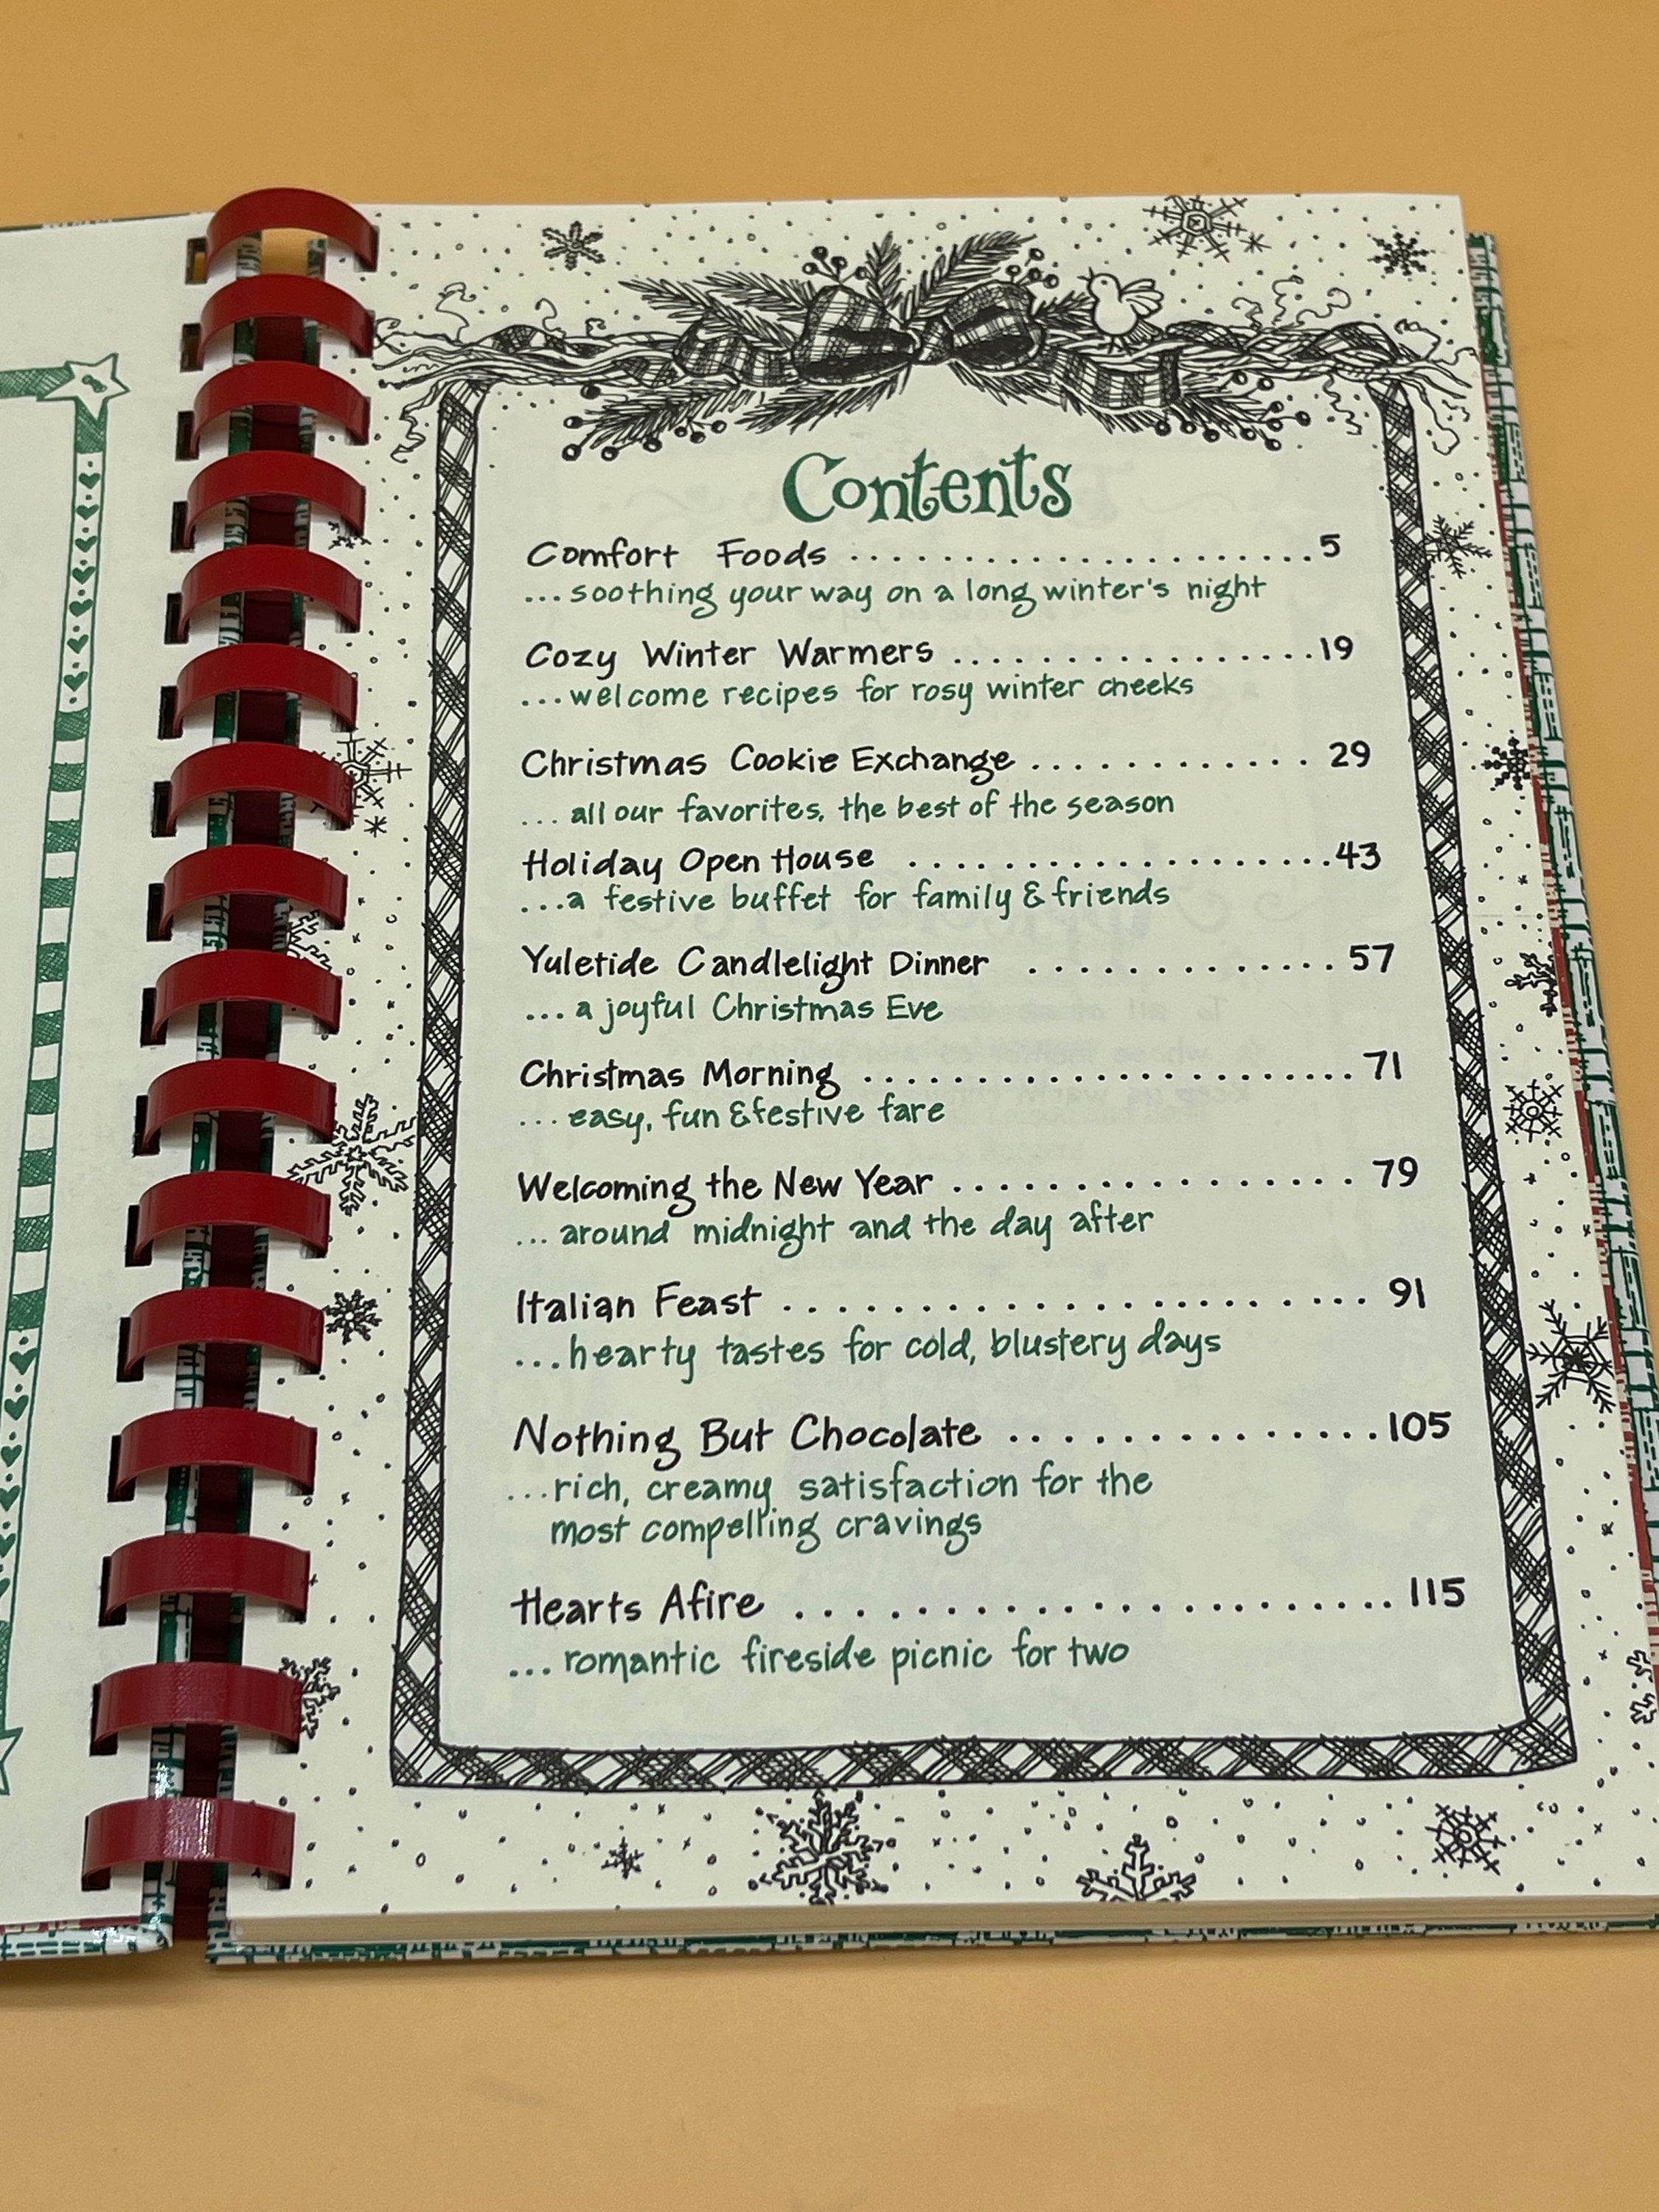 Contents
Comfort Foods .......................5
...soothing your way on a long winter's night
Cozy Winter Warmers .................19
...welcome recipes for rosy winter cheeks
Christmas Cookie Exchange ............ 29
...all our favorites, the best of the season
Holiday Open House ...................43
...a festive buffet for family & friends
Yuletide Candlelight Dinner ............. 57
...a joyful Christmas Eve
Christmas Morning ......................71
...easy, fun & festive fare
Welcoming the New Year ................. 79
...around midnight and the day after
Italian Feast ...................... 91
...hearty tastes for cold, blustery days
Nothing But Chocolate ...............105
...rich, creamy satisfaction for the
most compelling cravings
Hearts Afire ...................... 115
...romantic fireside picnic for two